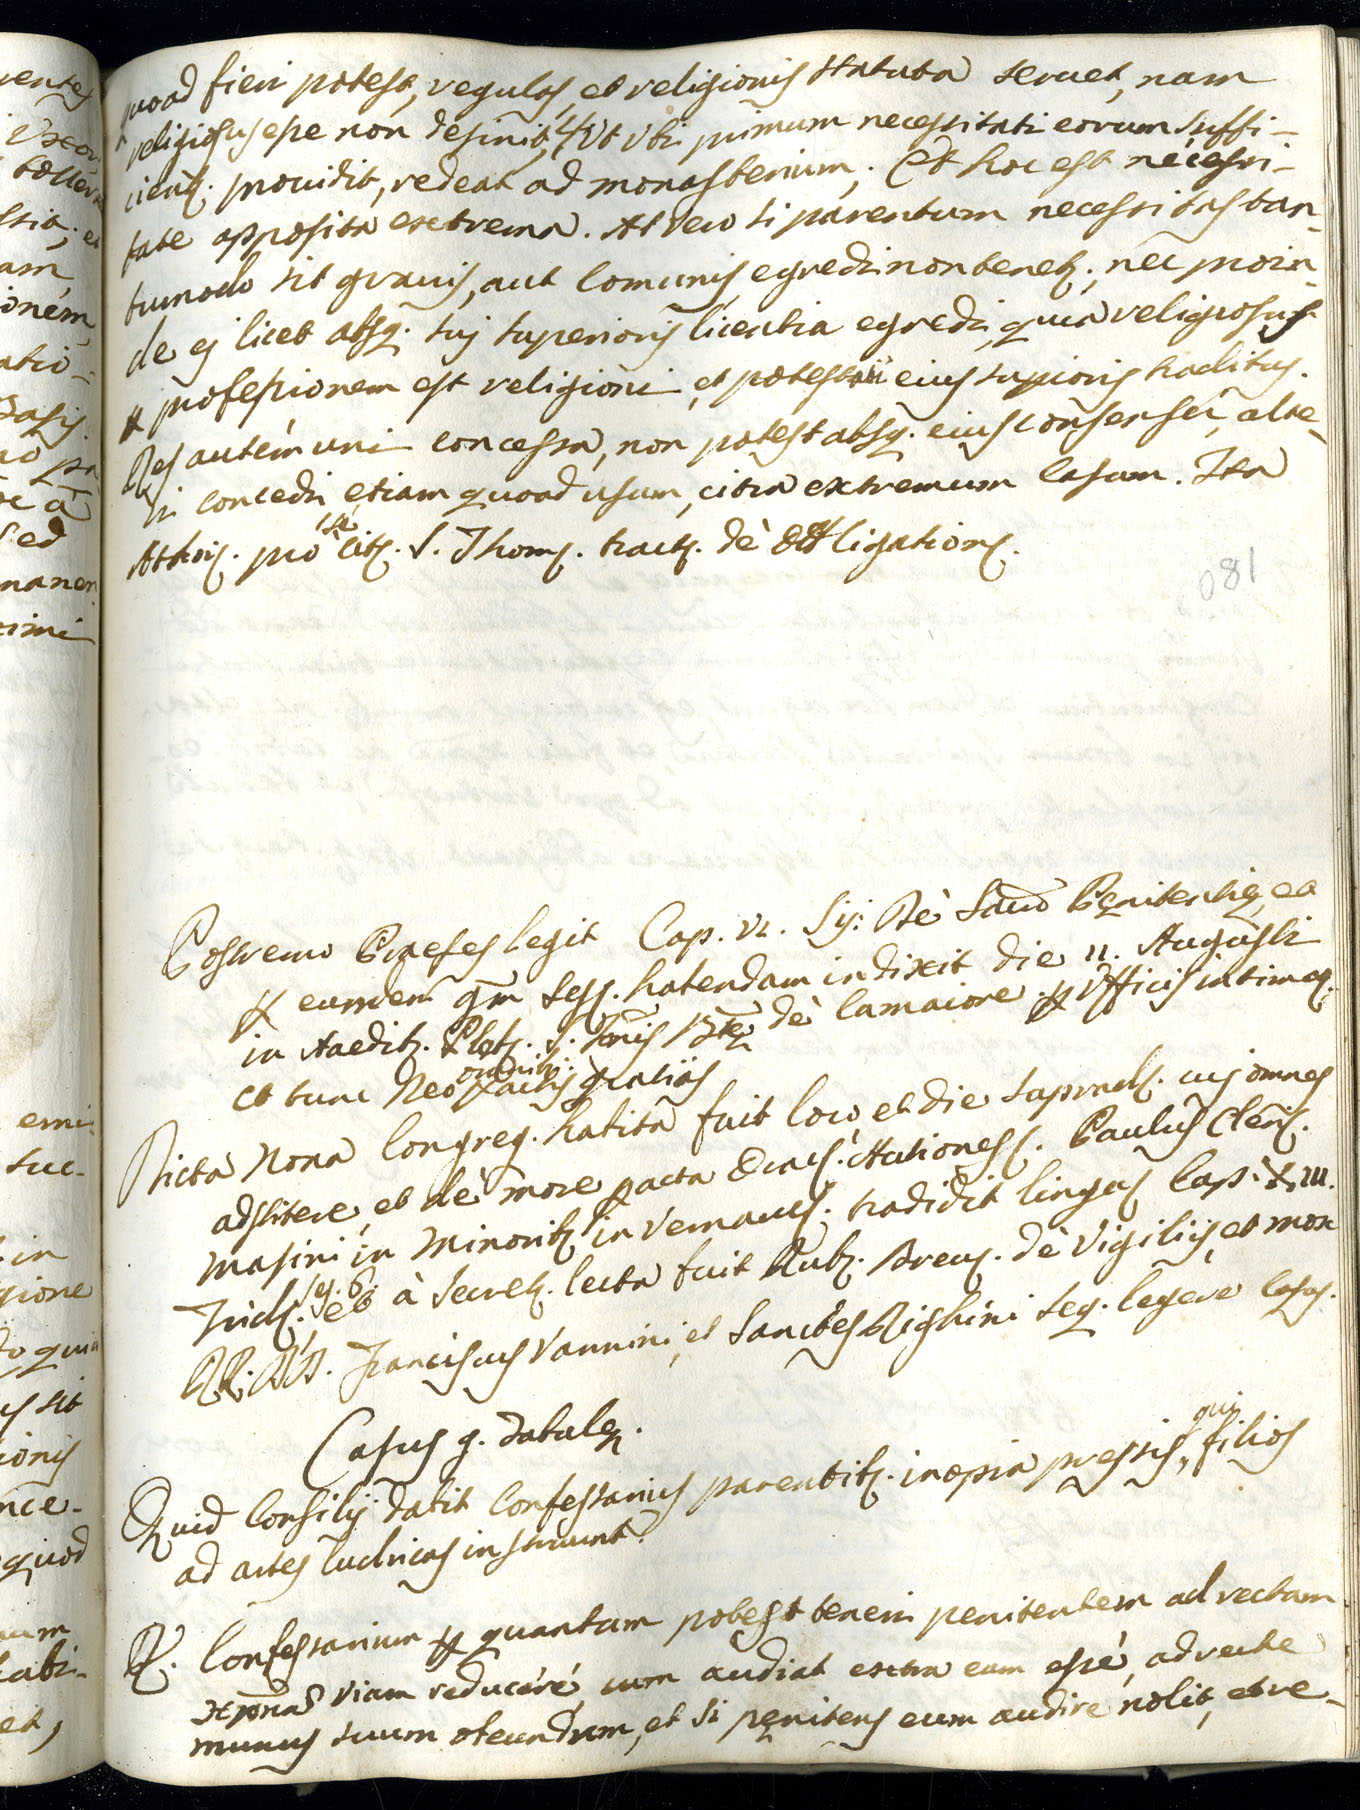 quoad fieri potest, regulas, et religionis statuta servet, nam
religiosus esse non desinit, Ut ubi primum necessitati eorum suffi-
cient. providit, redeat ad monasterium; Et hoc est necessi-
tate apposita extrema. At vero si parentum necessitas tan-
tumodo sit gravis, aut comunis egredi non tenet.; nec proin-
de ej licet absq. suj superioris licentia egredi, quia religiosus
professionem est religioni, et potestati eius supioris traditus.
Res autem uni concessa, non potest absq. eius consensu, alte-
ri concedi etiam quoad usum, citra extremum casum. Ita
pro cit. S. Thom. tract. de Obligation.
081
Postremo Praeses legit Cap. vi. Sij: De Sacro Penitentie, et
eumdem Sess. habendam indixit die 11. Augusti
in Aedib. S. de Camaiore officiis intimaq.
et tunc Deo omnib. gratias
Dicta Nona Congreg. habita fuit loco, et die supradt. cuj omnes
adstitere, et de more pacta Paulus Cleri.
Masini in Minorib. in vernacul. tradidit lingua Cap. III.
Trid. Ses. 6. et à Secret. lecta fuit Rub. Brev. de Vigiliis, et mox
RR. DD. Franciscus Vannini, et Sanctes Righini seq. legere casus.
Casus g. Tabule.
Quid Consilij dabit Confessarius parentib. inopia pressis, qui filios
ad artes ludricas instruunt.
R. Confessarium quantum potest teneri penitentem ad rectam
viam reducere, cum audiat extra eam esse, ad recte
munus suum obeundum, et si penitens eum audire nolit, et re-